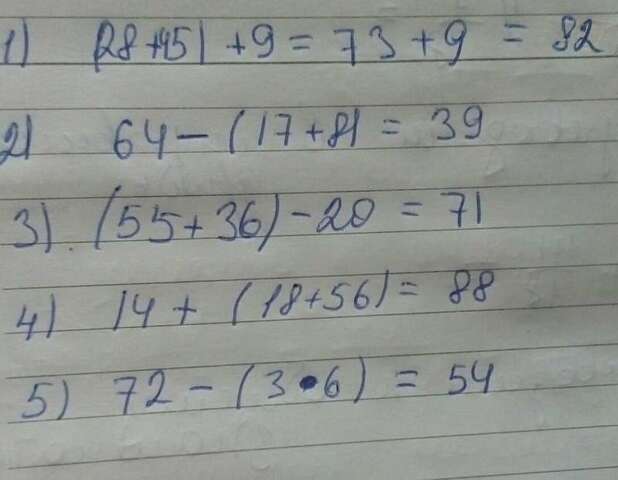 1) (28+45)+9=73+9=82
2) 64-(17+8)=39
3) (55+36)-20=71
4) 14+(18+56)=88
5) 72-(3•6)=54